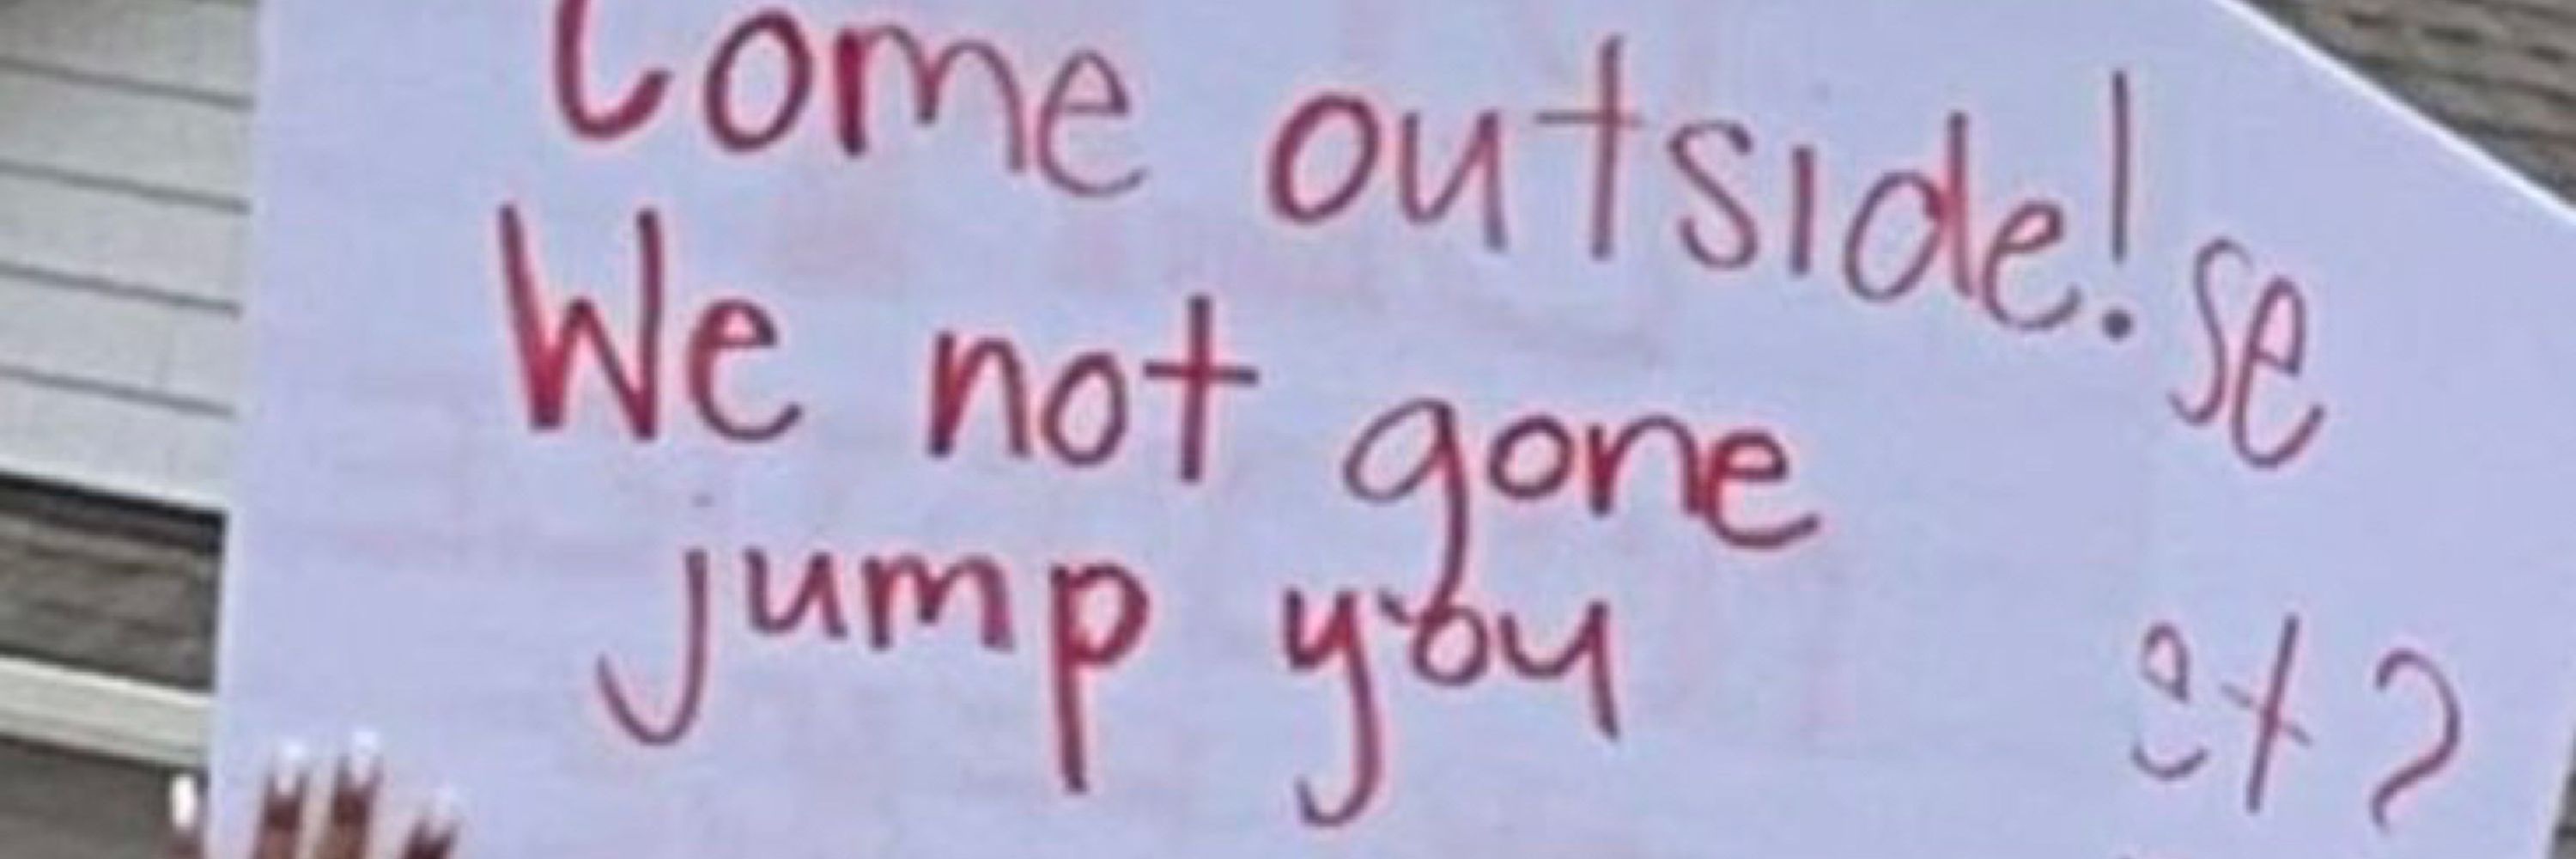 Come outside!
We not gone
jump you
se
et?